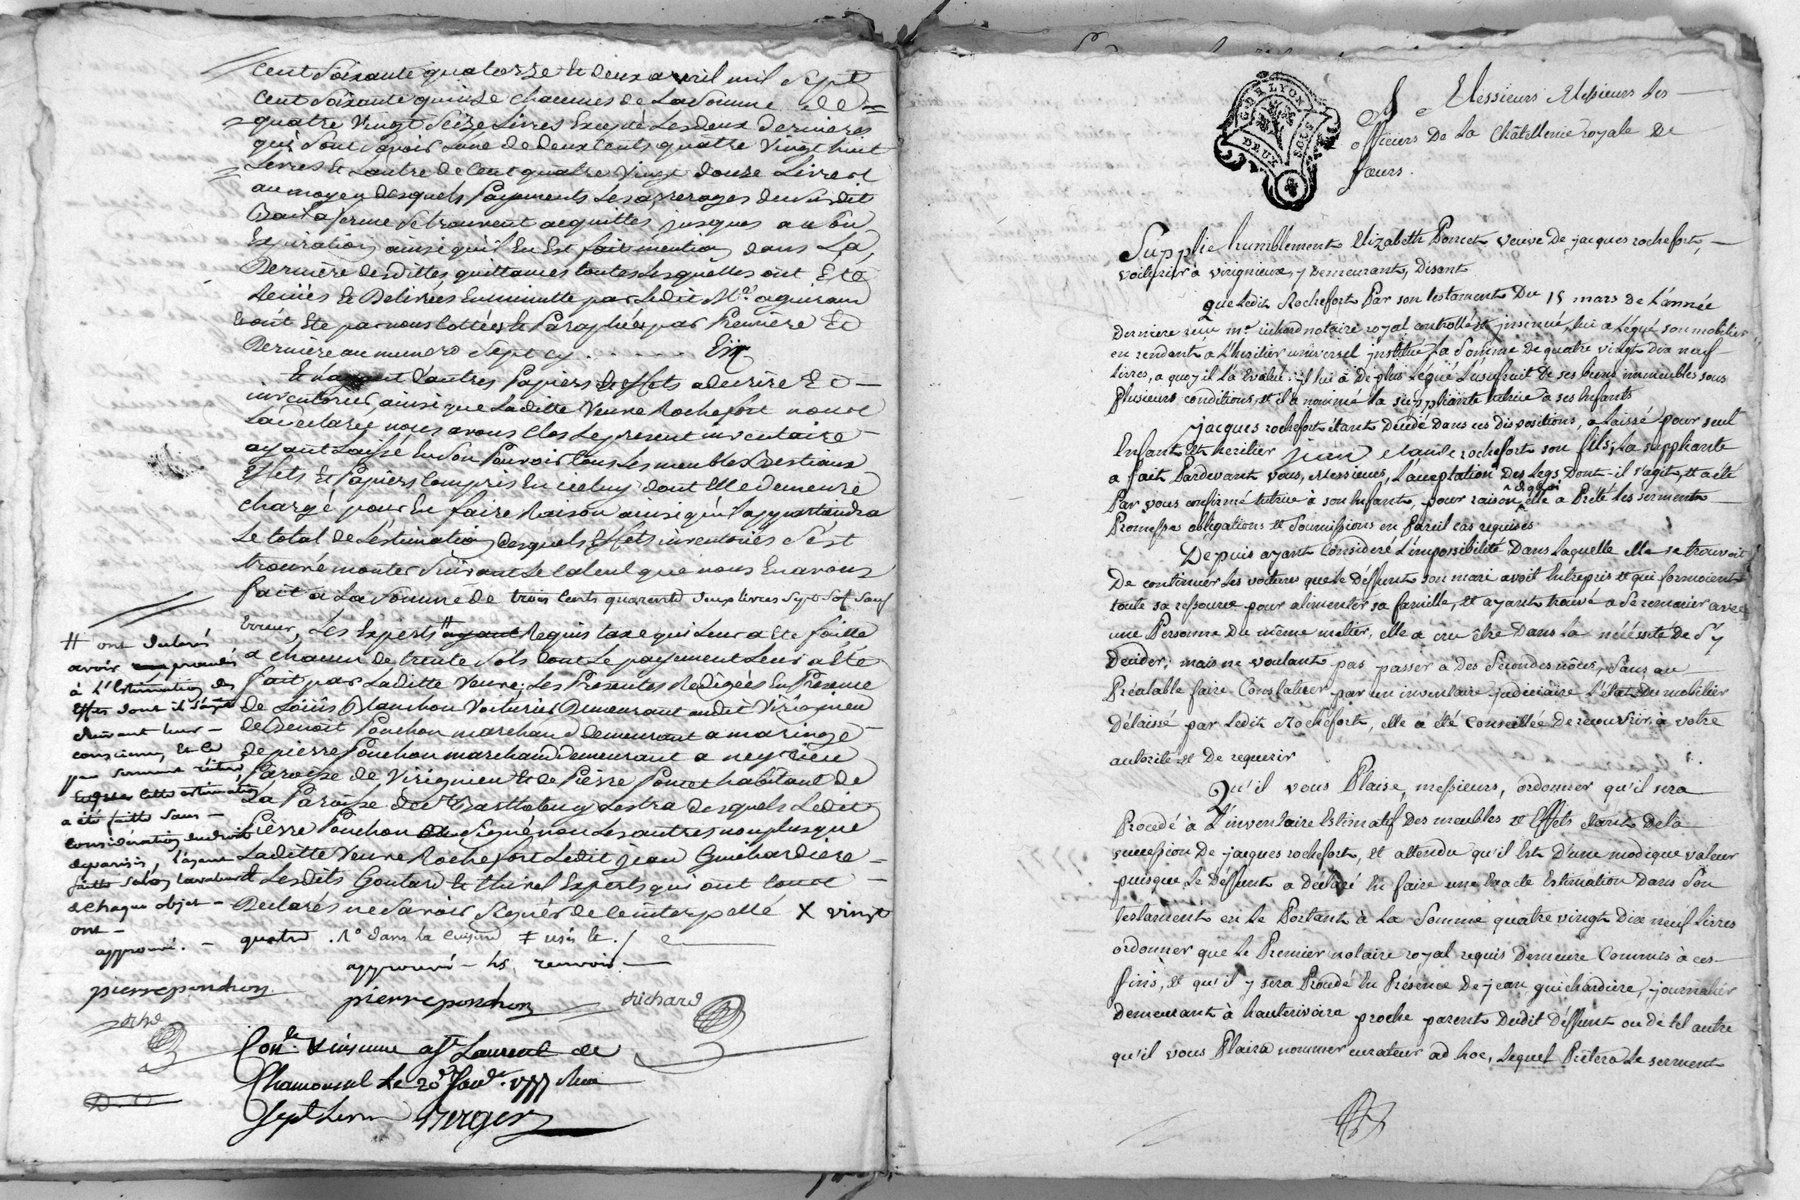 cent soixante quatorze et deux avril mil sept
cent soixante quinze chacunes de la somme de
quatre vingt seize livres Excepté Les deux dernieres
qui sont scavoir L'une de deux cents quatre vingt huit
Livres Et L'autre de Cent quatre vingt douze Livres et
au moyen desquels Payements Les arrerages du susdit
Bail a ferme se trouvent acquittes jusques a son
Expiration, ainsi qu'il En Est fait mention dans La
Derniere desdittes quittances toutes Lesquelles ont Eté
Reçües Et Delivrées En minutte par Ledit Me aguiraud
Et ont Eté par nous Cottées Et Paraphées par Premiere Et
Derniere au numero Sept cy . . . . .
Et n'ayant d'autres Papiers Et effets a decrire Et
inventorier, ainsi que Laditte Veuve Rochefort nous
La declaré, nous avons Clos Le present inventaire
ayant Laissé En son Pouvoir tous Les meubles Bestiaux
Effets Et Papiers Compris En iceluy dont Elle demeure
chargé pour En faire Raison ainsi qu'il appartiendra
Le total de L'estimation desquels Effets inventoriés s'est
trouvé monter suivant Le Calcul que nous En avons
fait a La somme de trois Cents quarente deux livres sept sols sauf
Erreur, Les Experts # ayant Requis taxe qui Leur a Eté faitte
a chacun de trente sols dont Le payement Leur a Eté
fait par Laditte Veuve; Les Presentes Redigées En Presence
de Loüis Blanchon Voiturier Demeurant audit Virignieu
de Benoit Ponchon marchand demeurant a maringe
de pierre Ponchon marchand demeurant a neyrieu
Paroisse de Virignieu Et de Pierre Poncet habitant de
La Paroisse de St Barthelemy Lestra desquels Ledit
Pierre Ponchon a Signé non Les autres non plus que
Laditte Veuve Rochefort Ledit jean Guichardiere
Et Lesdits Goutard Et thivel Experts qui ont tous
Declarés ne Savoir Signer de Ce interpellé X vingt
quatre . 1° dans la Cuisine ≠ usés Et . /
approuvé les renvois.
# ont declaré
avoir procedé
à L'Estimation des
Effets dont il s'agit
suivant leur
conscience, Et le
par serment réitéré
Cette estimation
a été faitte sans
considération
l'ayant
faitte selon la valeur
de chaque objet
ont
approuvé.
pierreponchon
pierreponchon
Richard
Conle Vinsieme aff Laurent de
Chamousset Le 20e Janv. 1777 Recu
Sept Livres Berger
G. DE LYON
DEUX SOLS
A Messieurs Messieurs Les
officiers De La Châtellenie royale De
fœurs.
Supplie humblement Elizabeth Poncet veuve De jacques rochefort,
voiturier à virignieux, y Demeurante, Disant
Que Ledit Rochefort Par son testament Du 15 mars de L'année
Derniere reçu me richard notaire royal controllé et insinué, lui a Légué son mobilier
en rendant à L'heritier universel institué La somme de quatre vingt Dix neuf
livres, a quoy il L'a Evalué: il lui à De plus Legué L'usufruit de ses biens immeubles sous
Plusieurs conditions, et il a nommé La suppliante tutrice a ses Enfants
jacques rochefort étant Décédé Dans ces dispositions, a Laissé pour seul
Enfant et heritier jean claude rochefort son fils; La suppliante
a fait Pardevant vous, messieurs, L'acceptation Des Legs Dont il s'agit, et a été
Par vous confirmé tutrice à son Enfant, pour raison de quoi elle a Prété Les serments
Promesse obligations et soumissions en Pareil cas requises
Depuis ayant Consideré L'impossibilité Dans Laquelle elle se trouvoit
De continuer Les voitures que Le Deffunt son mari avoit Entrepris et qui formoient
toute sa ressource pour alimenter sa famille, et ayant trouvé a Se remarier avec
une Personne Du même métier, elle a cru être Dans La nécéssité de S'y
Décider; mais ne voulant pas passer a des Secondes nôces, Sans au
Préalable faire Constater par un inventaire judiciaire L'état Du mobilier
Délaissé par Ledit Rochefort, elle a été conseillée De recourir à votre
autorité et De requerir
Qu'il vous Plaise, messieurs, ordonner qu'il sera
Procedé à L'inventaire Estimatif Des meubles et Effets étants De la
succession De jacques rochefort, et attendu qu'il Est D'une modique valeur
puisque Le Deffunt a Déclaré En faire une Exacte Estimation Dans Son
testament en Le Portant à La Somme quatre vingt Dix neuf Livres
ordonner que Le Premier notaire royal requis Demeure Commis à ces
fins, et qu'il y sera Procedé En Présence De jean guichardiere, journalier
Demeurant à hauterivoire proche parent Dudit Deffunt ou de tel autre
qu'il vous Plaira nommer curateur ad hoc, Lequel Prétera Le serment